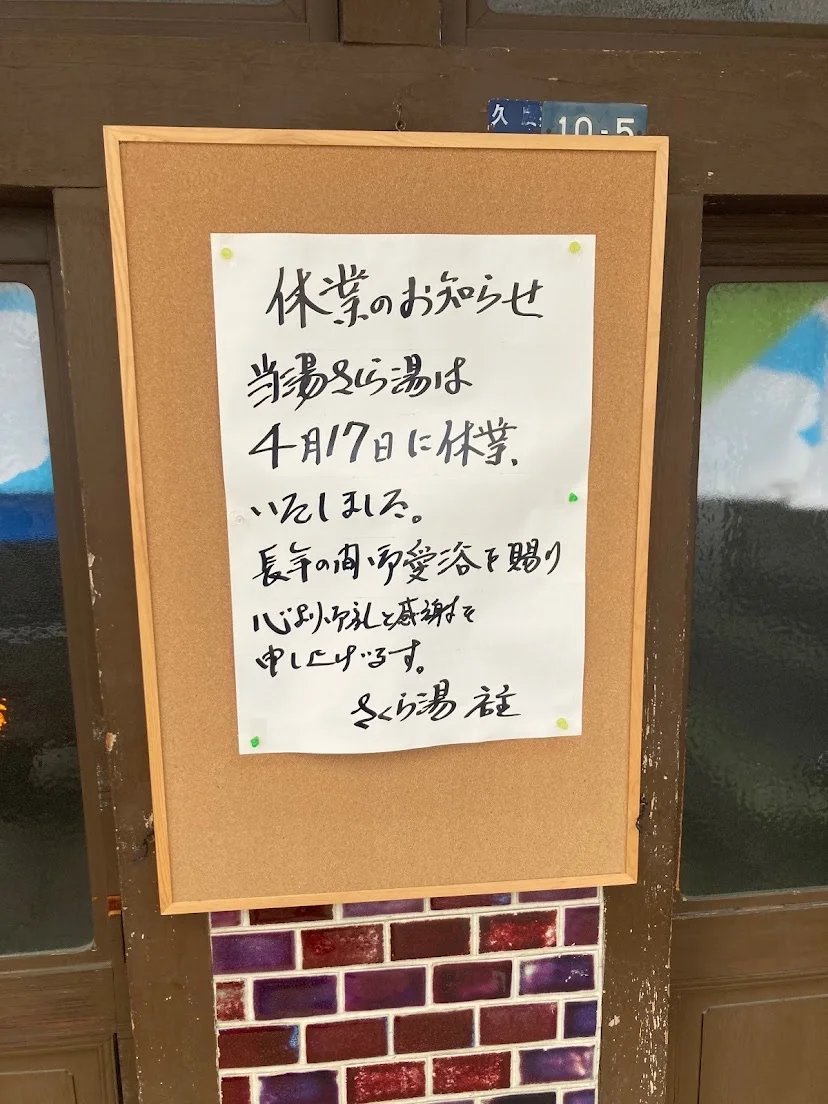 久
10-5
休業のお知らせ
当湯さくら湯は
4月17日に休業
いたしました。
長年の間御愛浴を賜り
心より御礼と感謝を
申し上げます。
さくら湯 店主